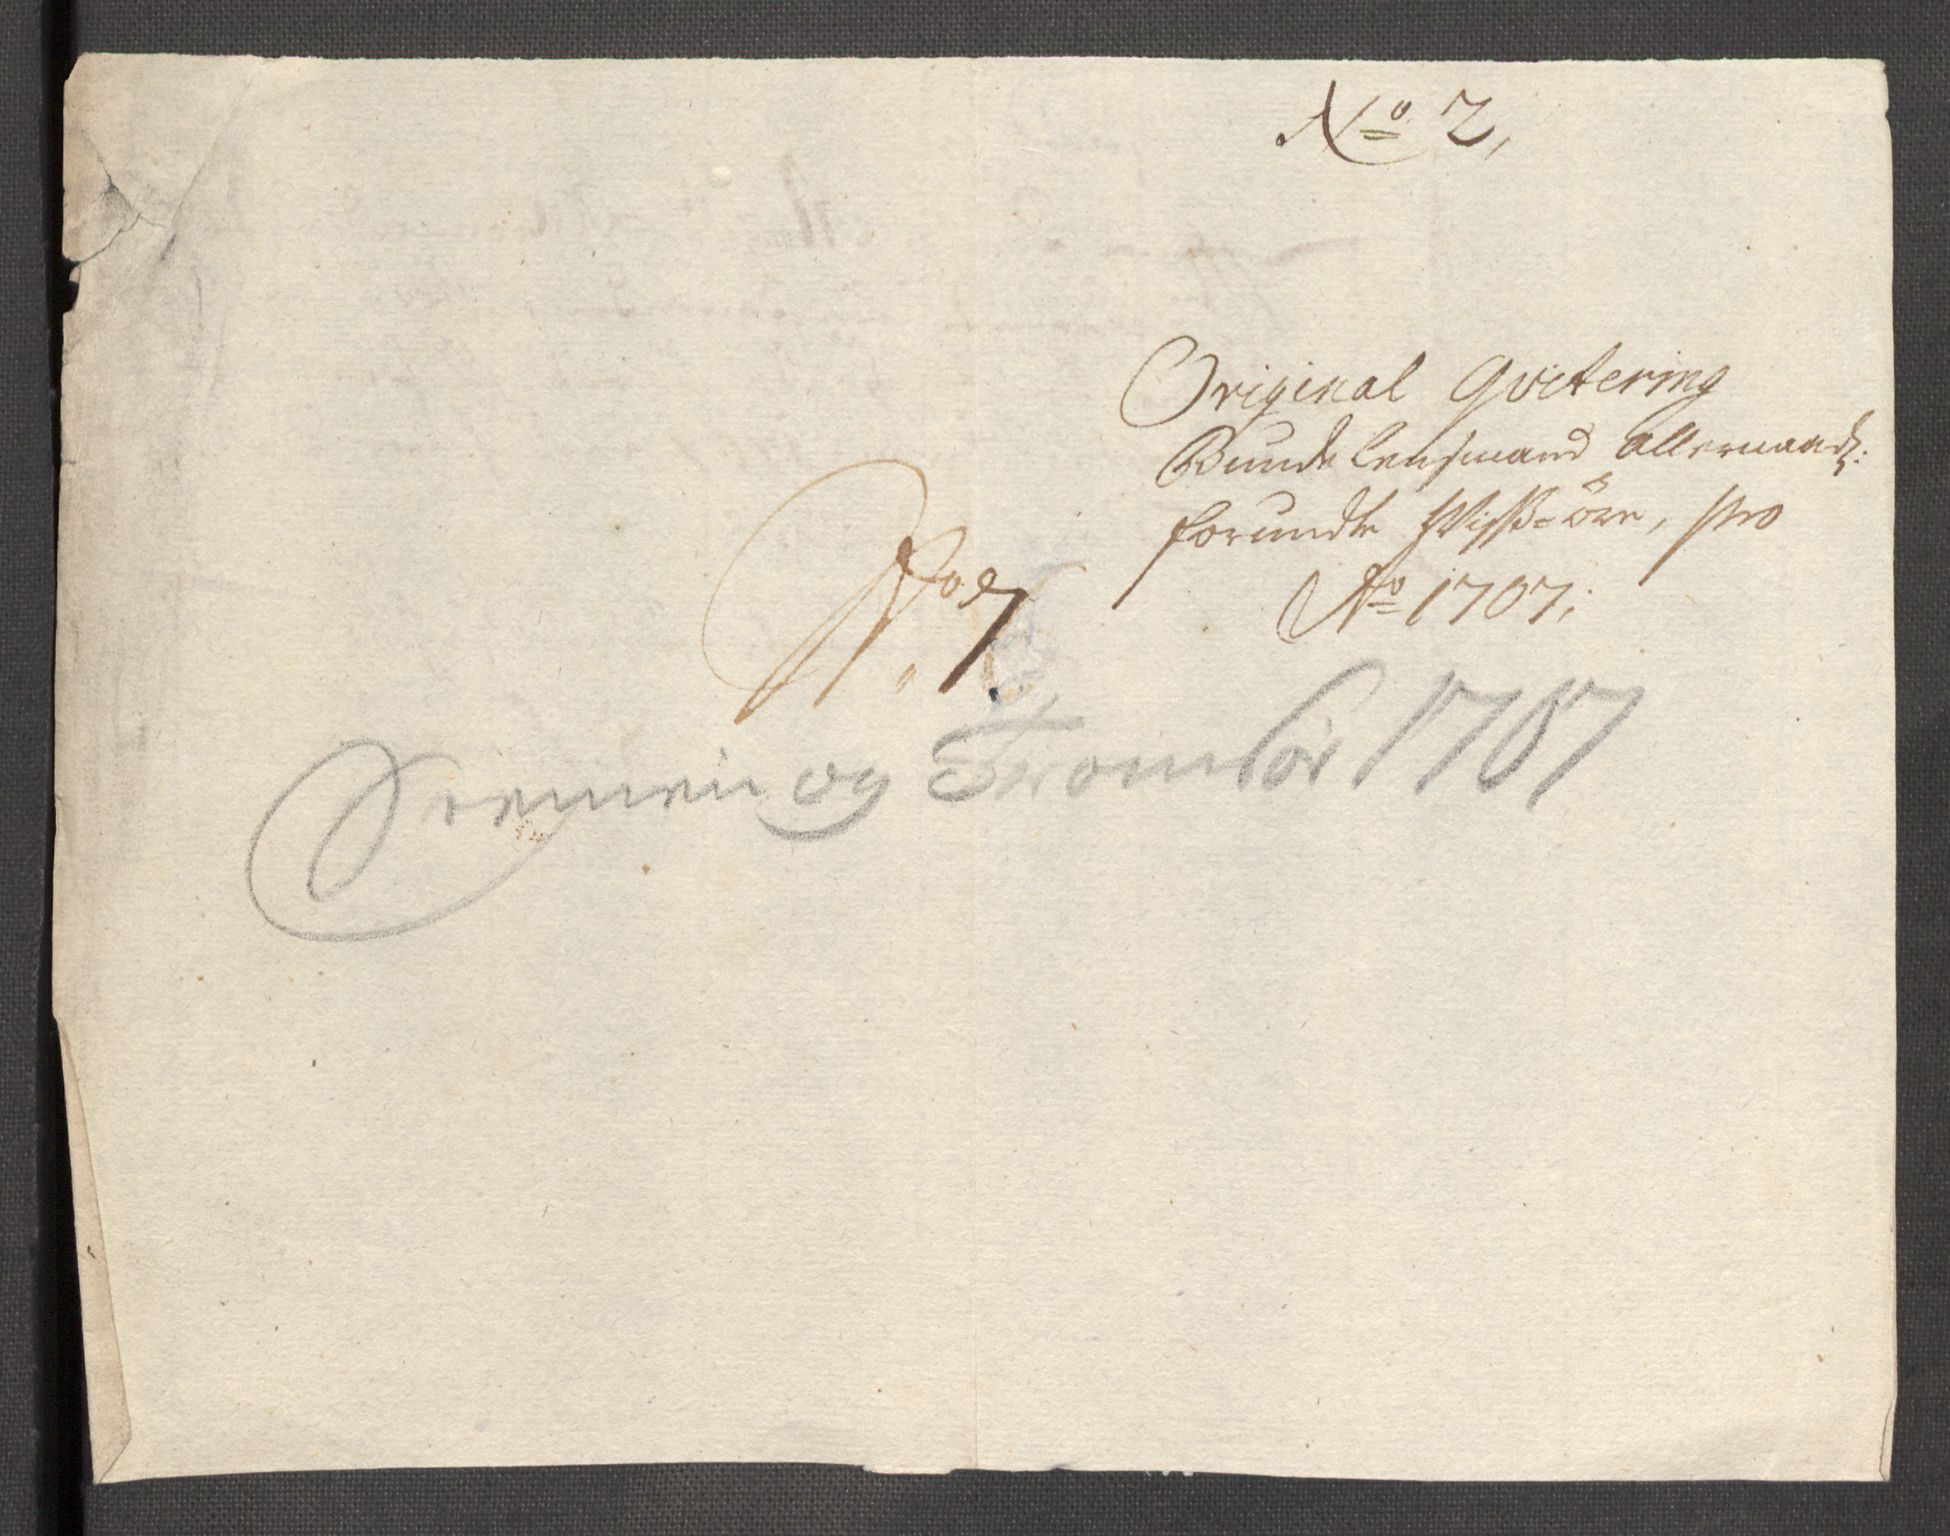 No 2,
Original Qvitering
Bunde lensmand Allernaads:
forundte Wisß-öre, pro
Ao 1707;
No 7.
Senmen og Tromsör 1707